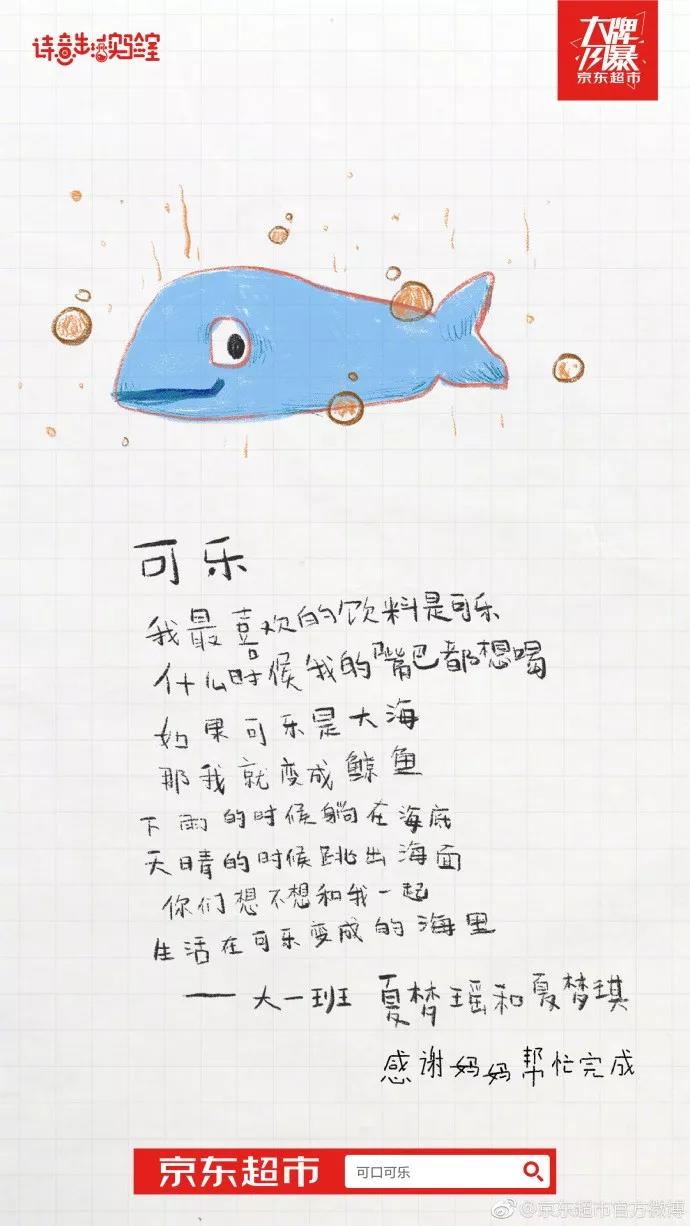 诗意生活实验室
大牌
风暴
京东超市
可乐
我最喜欢的饮料是可乐
什么时候我的嘴巴都想喝
如果可乐是大海
那我就变成鲸鱼
下雨的时候躺在海底
天晴的时候跳出海面
你们想不想和我一起
生活在可乐变成的海里
——大一班 夏梦瑶和夏梦琪
感谢妈妈帮忙完成
京东超市 可口可乐
@京东超市官方微博